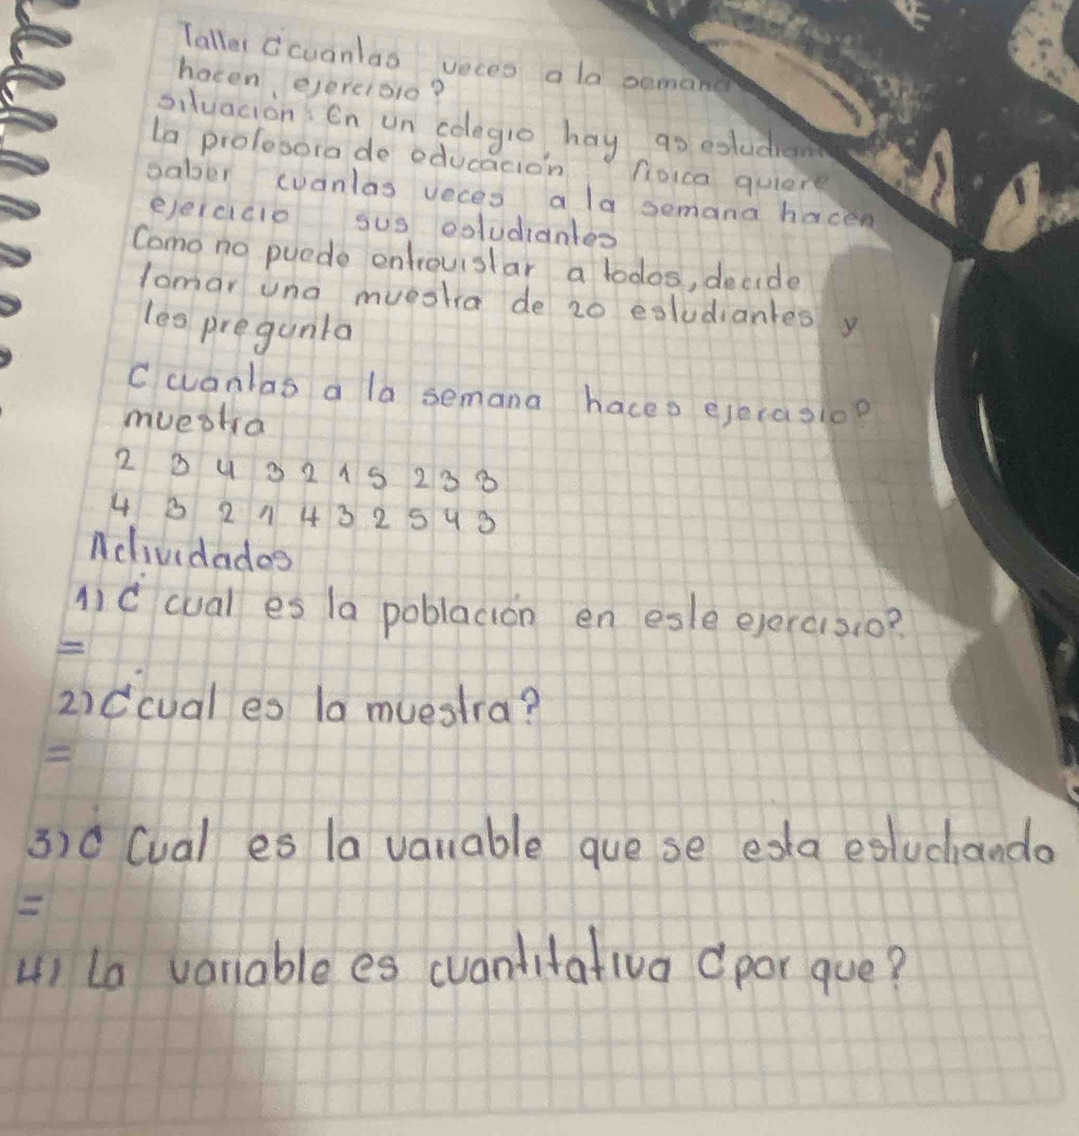 Taller ¿cuantas veces a la semana
hacen, ejercisio?
situación: En un colegio hay 90 estudian
la profesora de educación física quiere
saber cuantas veces a la semana hacen
ejercicio sus estudiantes
Como no puede entrevistar a todos, decide
tomar una muestra de 20 estudiantes y
les pregunta
Cuantas a la semana haces ejercisio?
muestra
2 3 4 3 2 1 5 2 3 3
4 3 2 1 4 3 2 5 4 3
Actividades
1) ¿ cual es la población en este ejercisio?
=
2) ¿cual es la muestra?
=
3) ¿ Cual es la variable que se esta estudiando
=
4) La variable es cuantitativa ¿por que?